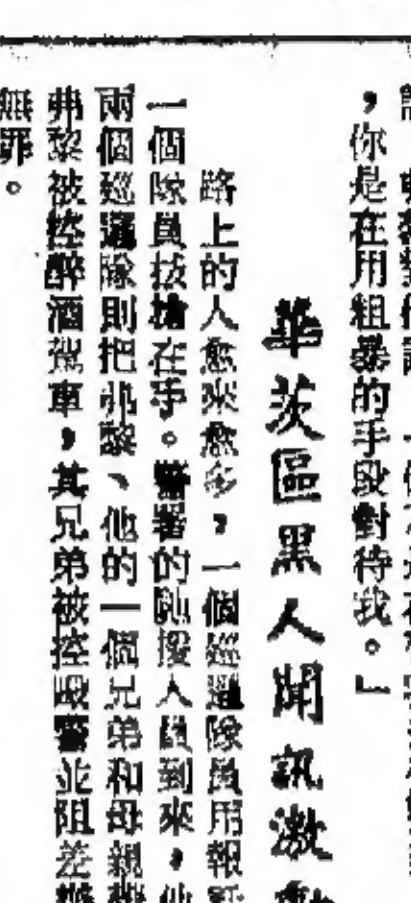 ，你是在用粗暴的手段對待我。」
華茨區黑人聞訊激動
路上的人愈來愈多，一個巡邏隊員用報話
一個隊員拔槍在手。警署的增援人員到來，他
兩個巡邏隊則把弗黎、他的一個兄弟和母親
弗黎被控醉酒駕車，其兄弟被控毆警並阻差辦
無罪。